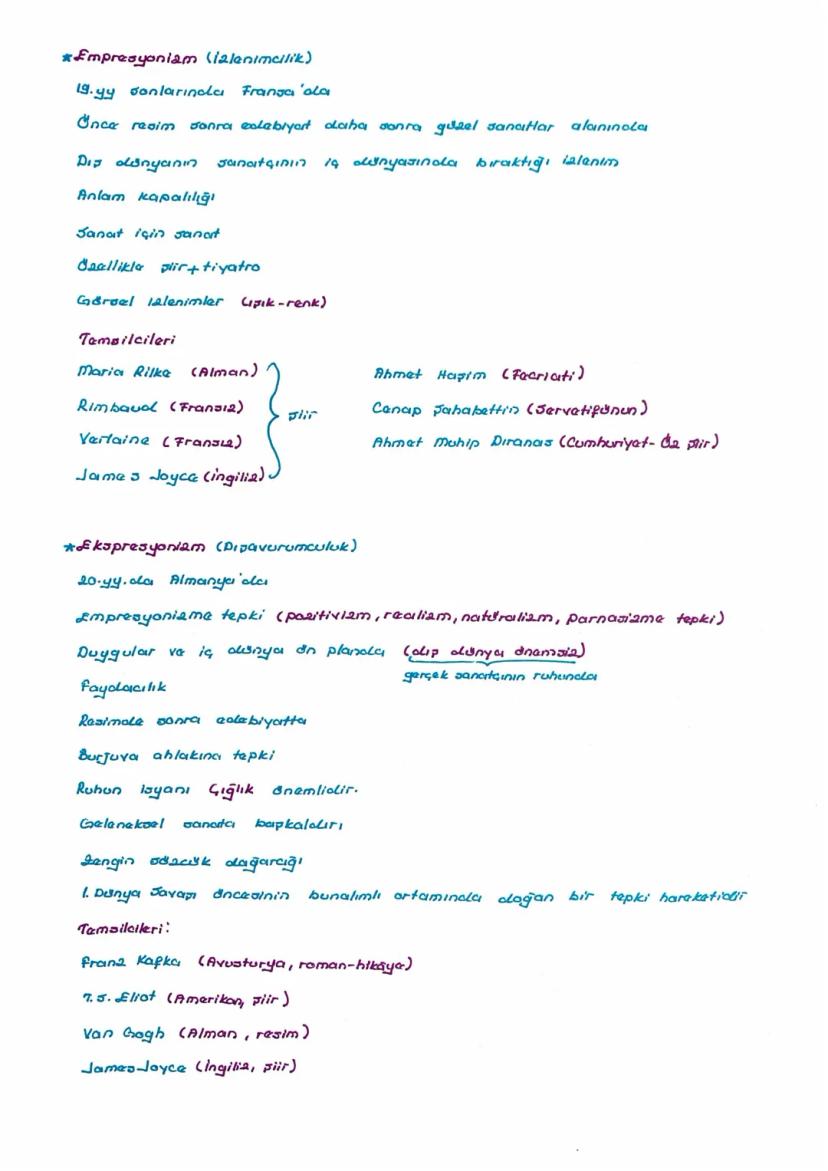 *Empresyonizm (İzlenimcilik)
19.yy sonlarında Fransa'da
Önce resim sonra edebiyat daha sonra güzel sanatlar alanında
Dış dünyanın sanatçının iç dünyasında bıraktığı izlenim
Anlam kapalılığı
Sanat için sanat
Özellikle şiir+tiyatro
Görsel izlenimler (ışık-renk)
Temsilcileri
Maria Rilke (Alman)
Rimbaud (Fransız)
Verlaine (Fransız)
James Joyce (ingiliz)
şiir
Ahmet Haşim (Fecriati)
Cenap Şahabettin (Servetifünun)
Ahmet Muhip Dıranas (Cumhuriyet- Öz şiir)
*Ekspresyonizm (Dışavurumculuk)
20.yy.da Almanya'da
Empresyonizme tepki (pozitivizm, realizm, natüralizm, parnasizme tepki)
Duygular ve iç dünya ön planda (dış dünya önemsiz)
gerçek sanatçının ruhunda
Faydacılık
Resimde sonra edebiyatta
Burjuva ahlakına tepki
Ruhun isyanı Çığlık önemlidir.
Geleneksel sanata başkaldırı
Zengin sözcük dağarcığı
1. Dünya Savaşı öncesinin bunalımlı ortamında doğan bir tepki hareketidir
Temsilcileri:
Franz Kafka (Avusturya, roman-hikâye)
T. S. Eliot (Amerikan, şiir)
Van Gogh (Alman, resim)
James Joyce (İngiliz, şiir)